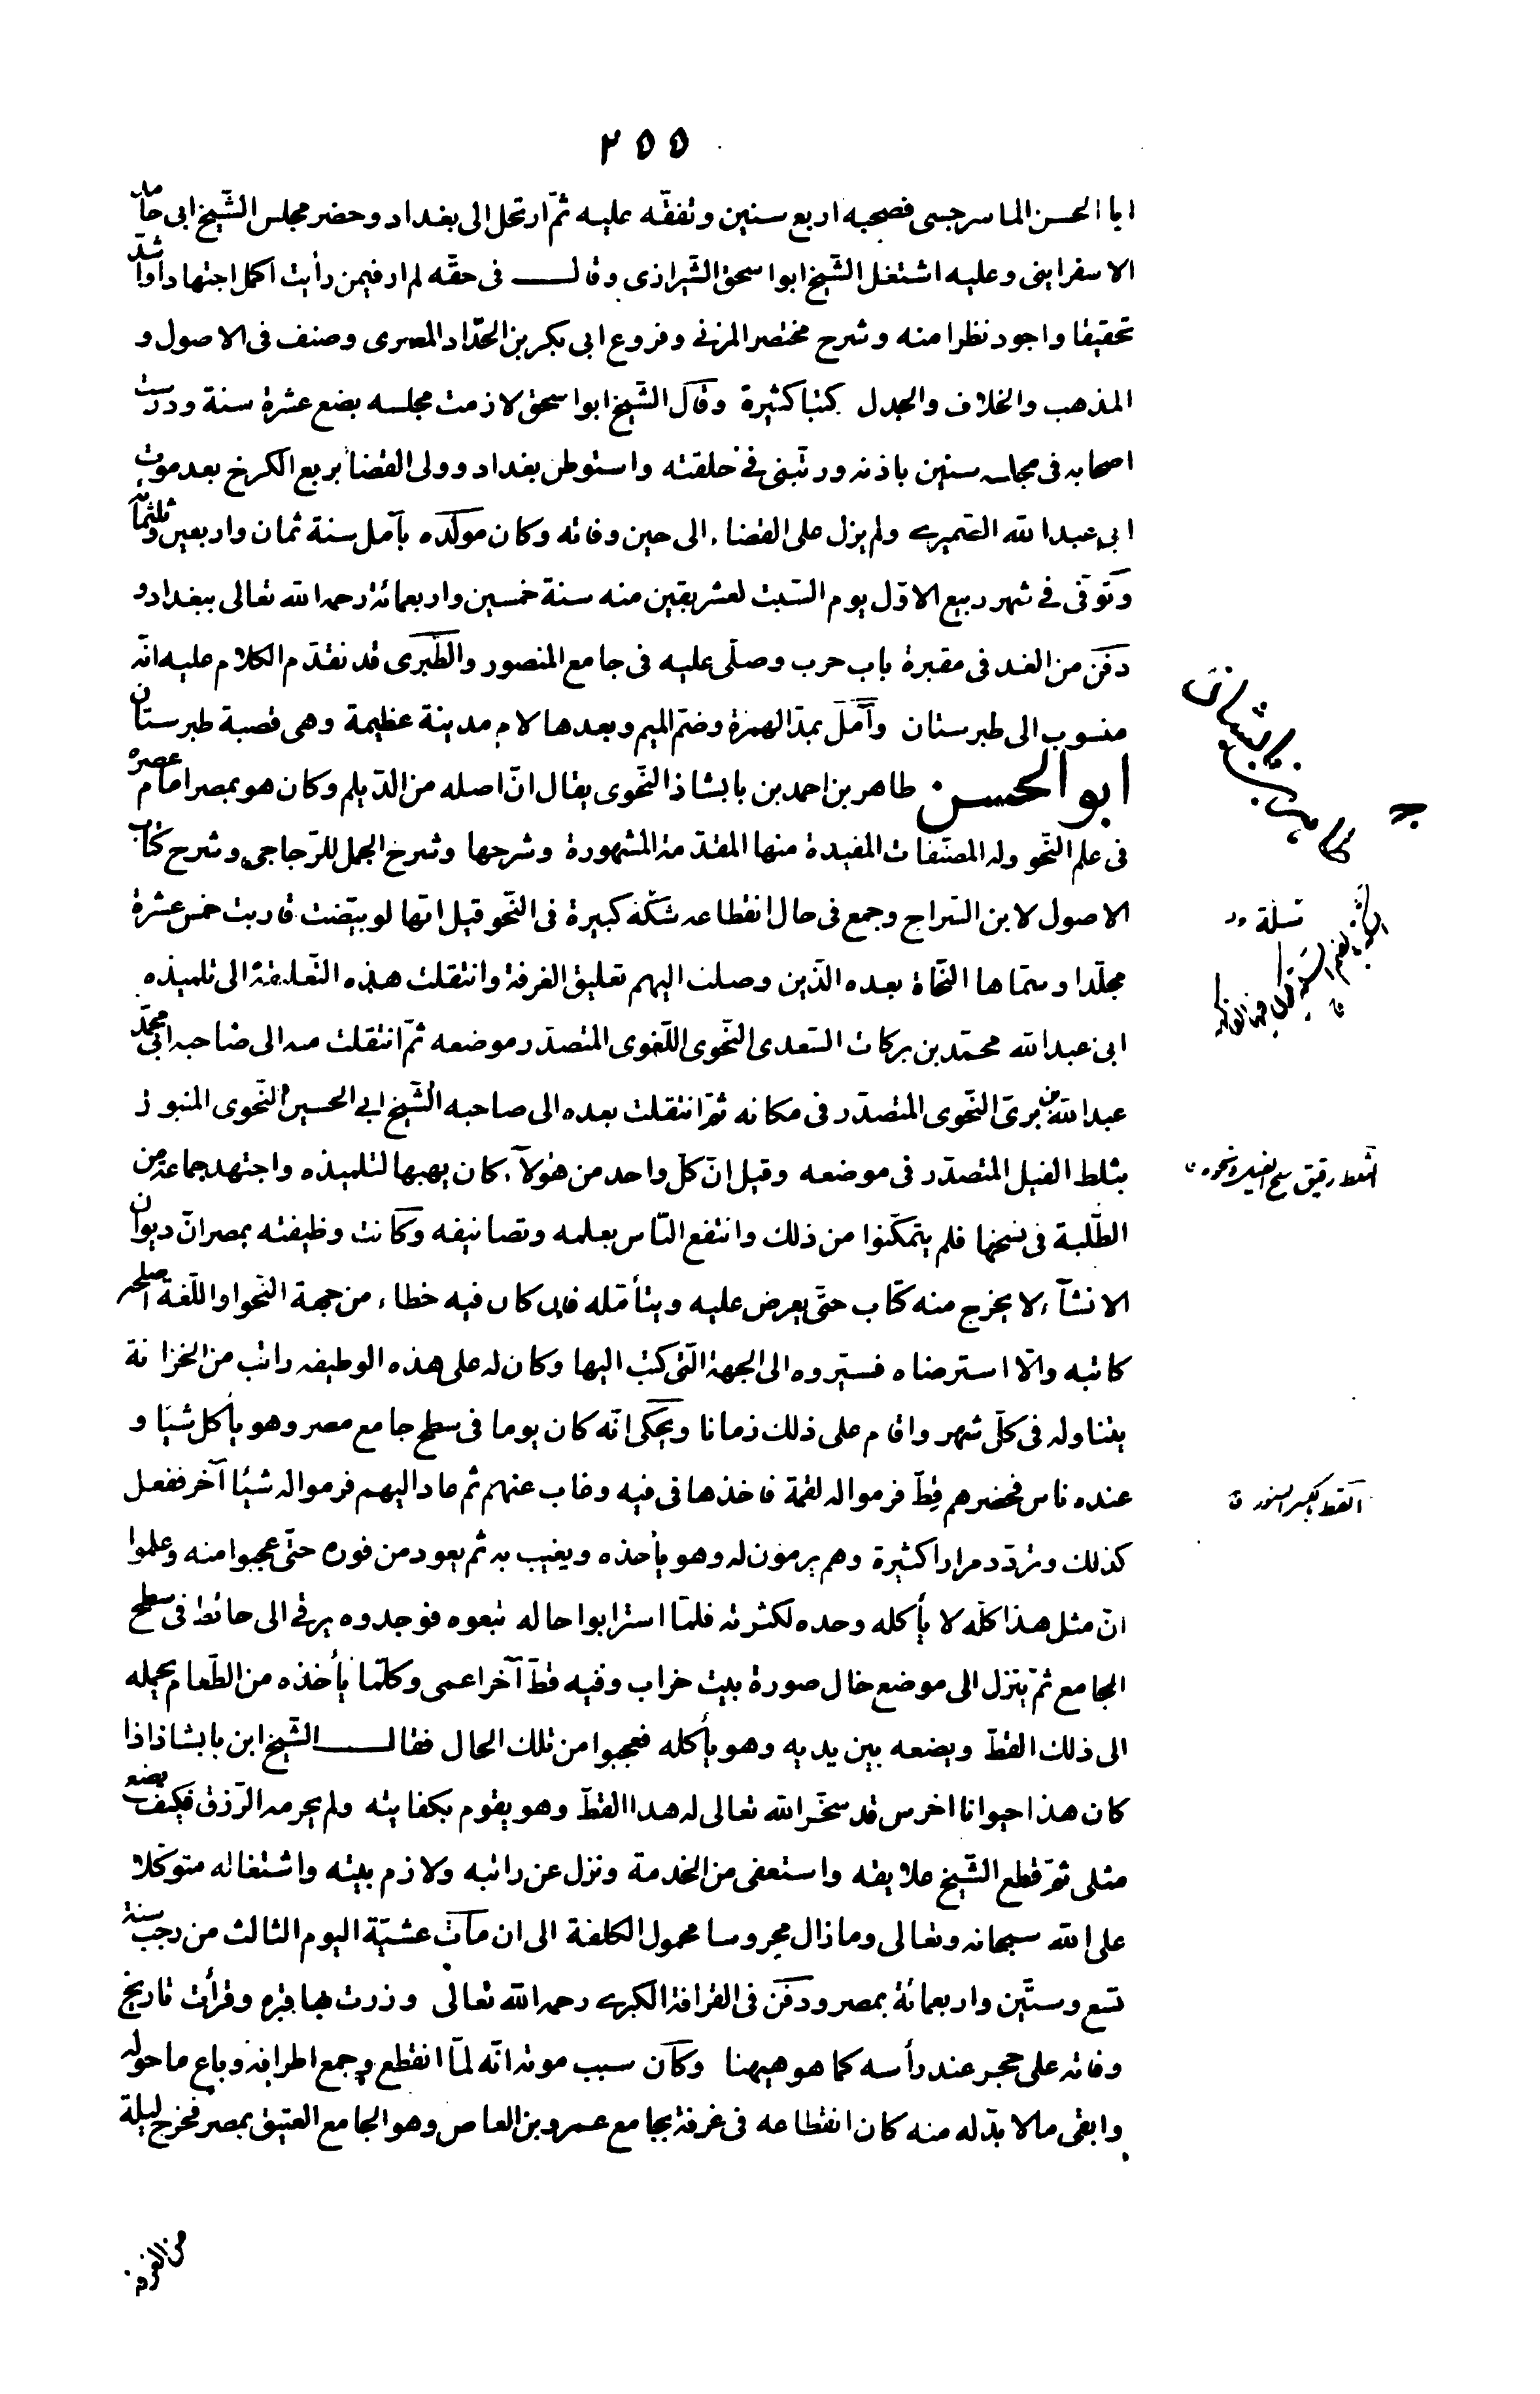 ٢٥٥
ابا الحسن الماسرجسى فصحبه اربع سنين وتفقّه عليه ثمّ ارتحل الى بغداد وحضر مجلس الشّيخ ابى حامد
الاسفراينى وعليه اشتغل الشّيخ ابو اسحق الشّيرازى وقال فى حقّه لم ار فيمن رأيت اكمل اجتهادا واشدّ
تحقيقا واجود نظرا منه وشرح مختصر المزنى وفروع ابى بكر بن الحدّاد المصرى وصنف فى الاصول و
المذهب والخلاف والجدل كتبا كثيرة وقال الشّيخ ابو اسحق لازمت مجلسه بضع عشرة سنة ودرست
اصحابه فى مجلسه سنين باذنه ورتّبنى فى حلقته واستوطن بغداد وولى القضا بربع الكرخ بعد موت
ابى عبد الله الصّميرى ولم يزل على القضاء الى حين وفاته وكان مولده بآمل سنة ثمان واربعين وثلثمائة
وتوفّى فى شهر ربيع الاوّل يوم السّبت لعشر بقين منه سنة خمسين واربعمائة رحمه الله تعالى ببغداد و
دفن من الغد فى مقبرة باب حرب وصلّى عليه فى جامع المنصور والطّبرى قد تقدّم الكلام عليه انّه
منسوب الى طبرستان وآمل بمدّ الهمزة وضمّ الميم وبعدها لام مدينة عظيمة وهى قصبة طبرستان
ابو الحسن طاهر بن احمد بن بابشاذ النّحوى يقال انّ اصله من الدّيلم وكان هو بمصر امام عصره
فى علم النّحو وله المصنّفات المفيدة منها المقدّمة المشهورة وشرحها وشرح الجمل للزّجاجى وشرح كتاب
الاصول لابن السّراج وجمع فى حال انقطاعه شكّة كبيرة فى النّحو قيل انّها لو بيّضت قاربت خمس عشرة
مجلّدا وسمّاها النّحاة بعده الّذين وصلت اليهم تعليق الغرفة وانتقلت هذه التّعليقة الى تلميذه
ابى عبد الله محمّد بن بركات السّعدى النّحوى اللّغوى المتصدّر موضعه ثمّ انتقلت منه الى صاحبه ابى محمّد
عبد الله بن برىّ النّحوى المتصدّر فى مكانه ثمّ انتقلت بعده الى صاحبه الشّيخ ابى الحسين النّحوى المنبوز
بثلط الفيل المتصدّر فى موضعه وقيل انّ كلّ واحد من هؤلآء كان يهبها لتلميذه واجتهد جماعة من
الطّلبة فى نسخها فلم يتمكّنوا من ذلك وانتفع النّاس بعلمه وتصانيفه وكانت وظيفته بمصر انّ ديوان
الانشآء لا يخرج منه كتاب حتّى يعرض عليه ويتأمّله فان كان فيه خطاء من جهة النّحو او اللّغة اصلحه
كاتبه والّا استرضاه فسيّروه الى الجهة الّتى كتب اليها وكان له على هذه الوظيفه راتب من الخزانة
يتناوله فى كلّ شهر واقام على ذلك زمانا ويحكى انّه كان يوما فى سطح جامع مصر وهو يأكل شيئا و
عنده ناس فحضرهم قطّ فرموا له لقمة فاخذها فى فيه وغاب عنهم ثم عاد اليهم فرموا له شيئا آخر ففعل
كذلك وتردّد مرارا كثيرة وهم يرمون له وهو يأخذه ويغيب به ثم يعود من فوره حتّى عجبوا منه وعلموا
انّ مثل هذا كلّه لا يأكله وحده لكثرته فلمّا استرابوا حاله تبعوه فوجدوه يرقى الى حائط فى سطح
الجامع ثمّ ينزل الى موضع خال صورة بيت خراب وفيه قطّ آخر اعمى وكلّما يأخذه من الطّعام يحمله
الى ذلك القطّ ويضعه بين يديه وهو يأكله فعجبوا من تلك الحال فقال الشّيخ ابن بابشاذ اذا
كان هذا حيوانا اخرس قد سخّر الله تعالى له هذا القطّ وهو يقوم بكفايته ولم يحرمه الرّزق فكيف يضع
مثلى ثمّ قطع الشّيخ علايقه واستعفى من الخدمة ونزل عن راتبه ولازم بيته واشتغاله متوكّلا
على الله سبحانه وتعالى وما زال محروسا محمول الكلفة الى ان مات عشيّة اليوم الثالث من رجب سنة
تسع وستّين واربعمائة بمصر ودفن فى القرافة الكبرى رحمه الله تعالى وزرت بها قبره وقرأت تاريخ
وفاته على حجر عند رأسه كما هو هيهنا وكان سبب موته انّه لمّا انقطع وجمع اطرافه وباع ما حوله
وابقى ما لا بدّ له منه كان انقطاعه فى غرفة بجامع عمرو بن العاص وهو الجامع العتيق بمصر فخرج ليلة
من الغرفة
الثلط رقيق سلح الفيل ونحوه
القط بالكسر السنور ق